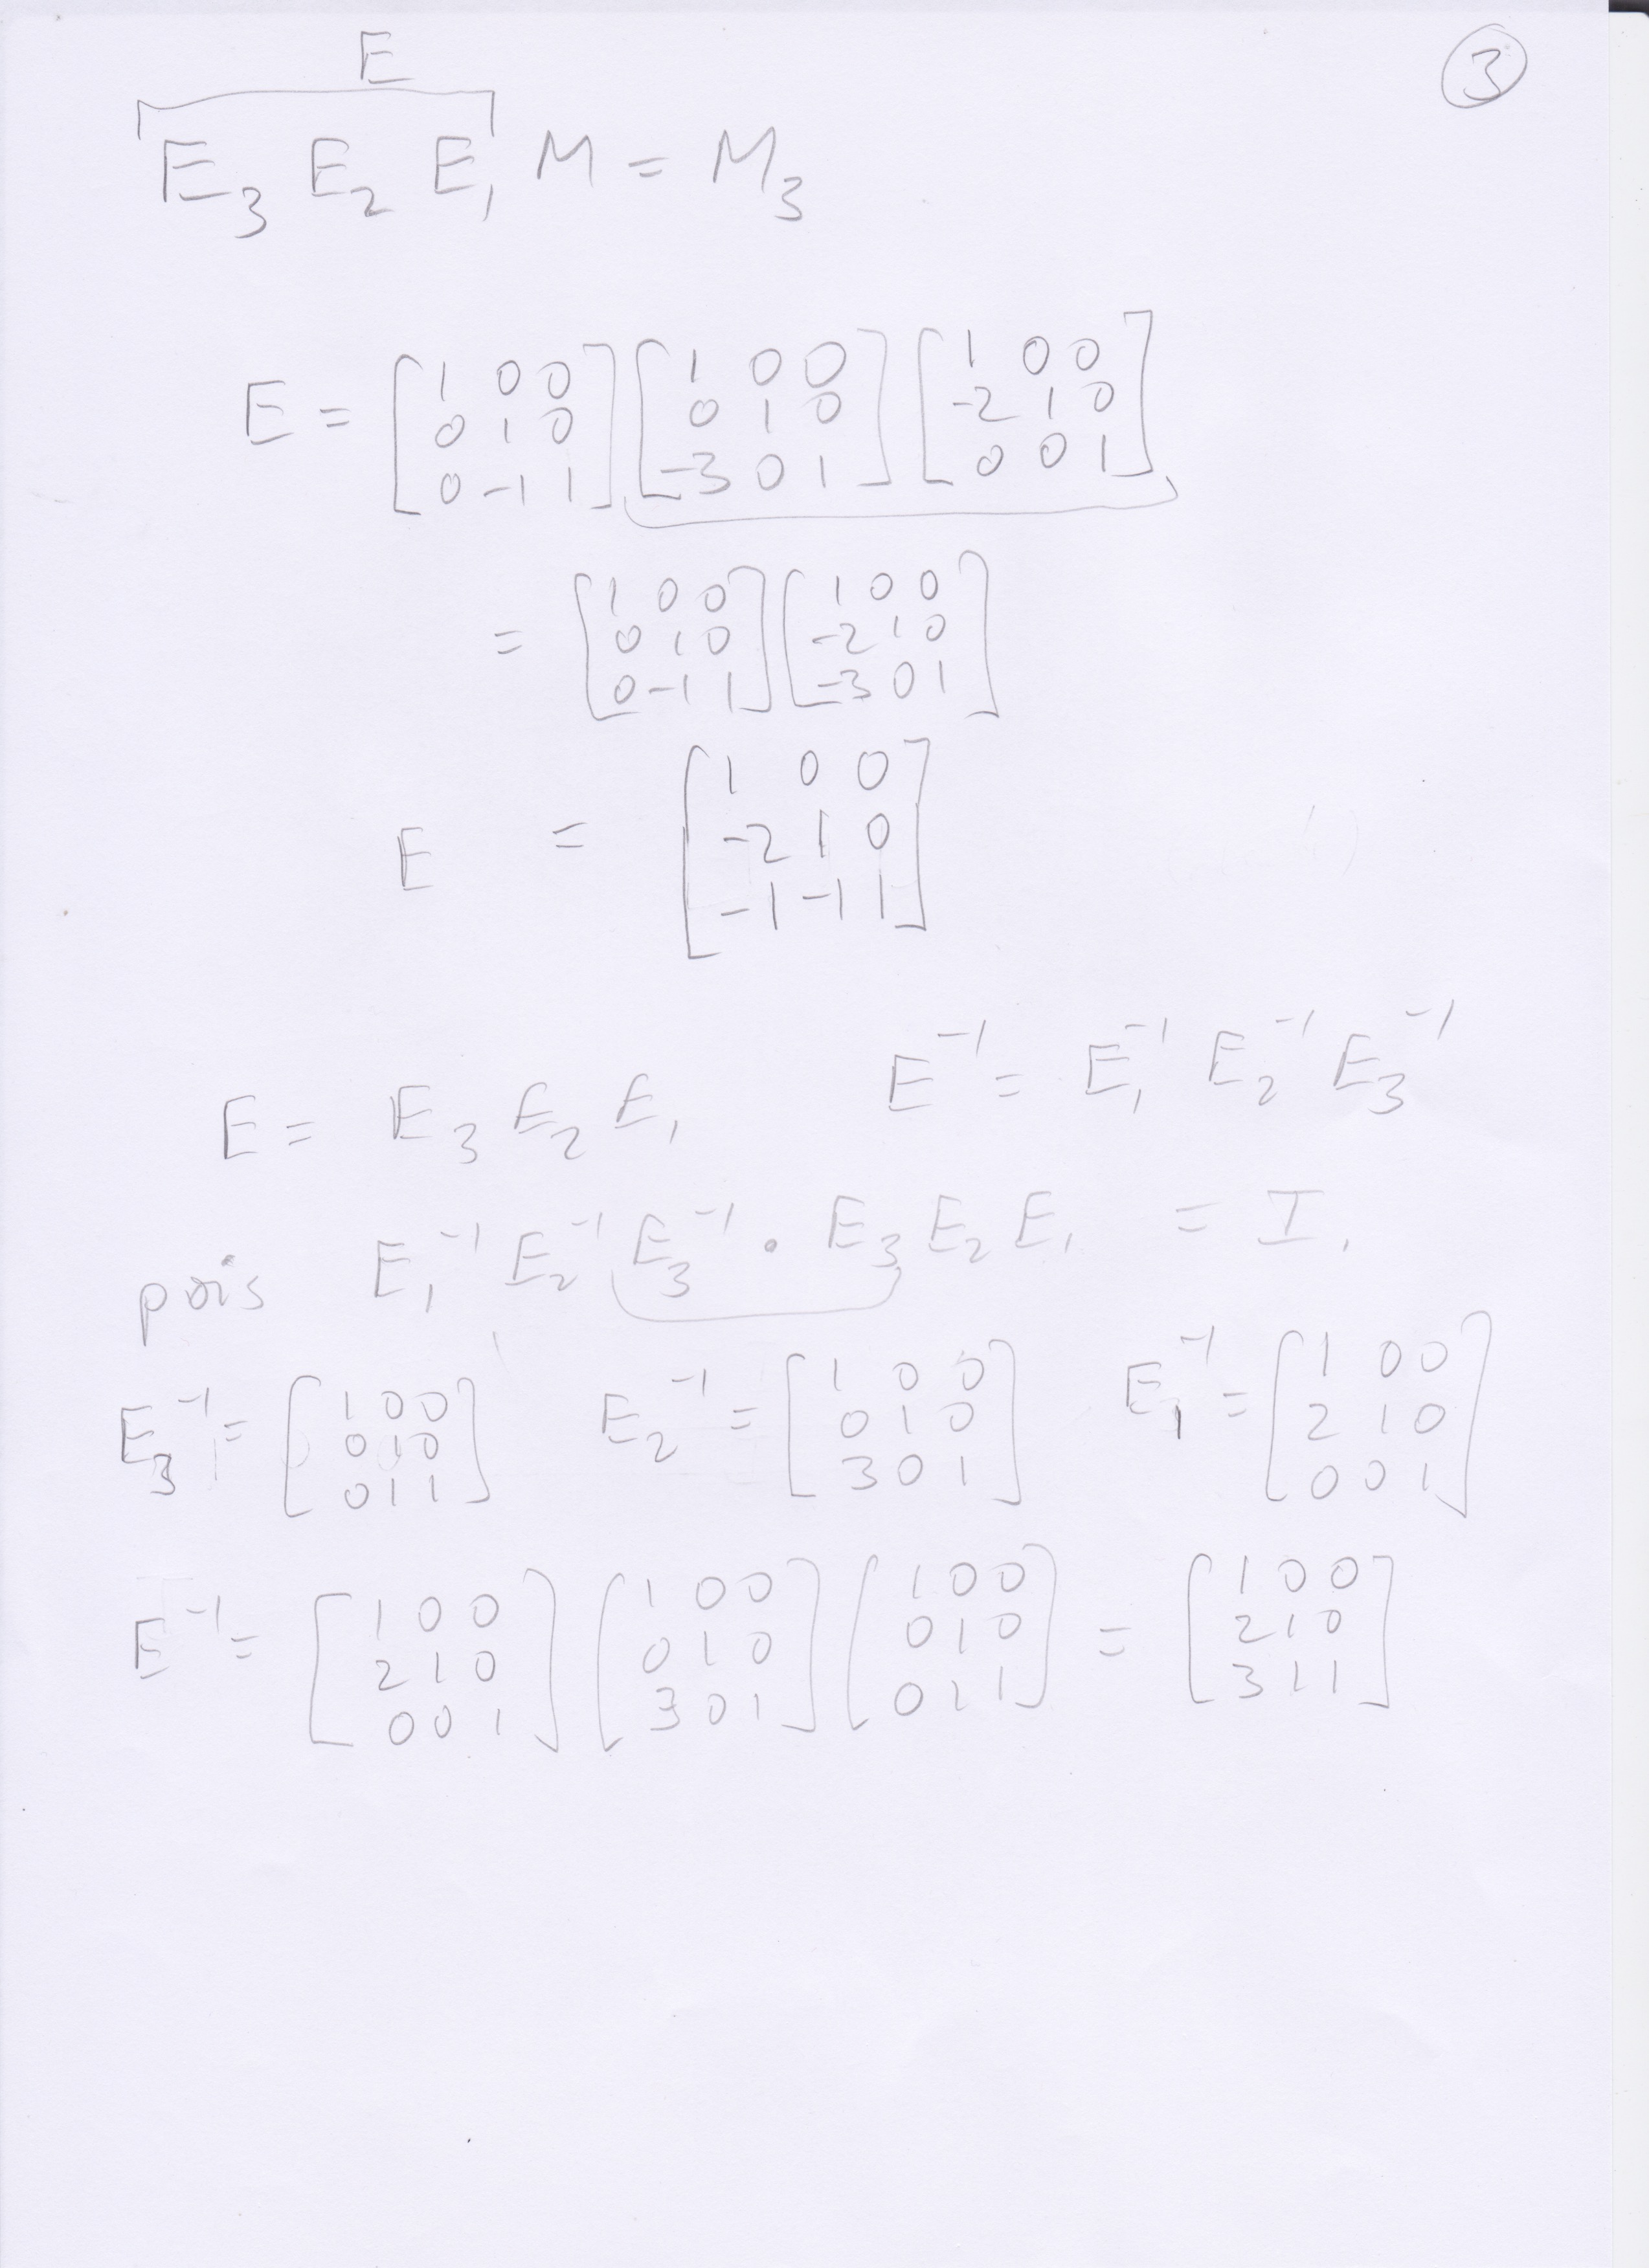 ③
E
E₃ E₂ E₁ M = M₃
E = [1 0 0; 0 1 0; 0 -1 1] [1 0 0; 0 1 0; -3 0 1] [1 0 0; -2 1 0; 0 0 1]
= [1 0 0; 0 1 0; 0 -1 1] [1 0 0; -2 1 0; -3 0 1]
E = [1 0 0; -2 1 0; -1 -1 1]
E = E₃ E₂ E₁ E⁻¹ = E₁⁻¹ E₂⁻¹ E₃⁻¹
pois E₁⁻¹ E₂⁻¹ E₃⁻¹ · E₃ E₂ E₁ = I.
E₃⁻¹ = [1 0 0; 0 1 0; 0 1 1] E₂⁻¹ = [1 0 0; 0 1 0; 3 0 1] E₁⁻¹ = [1 0 0; 2 1 0; 0 0 1]
E⁻¹ = [1 0 0; 2 1 0; 0 0 1] [1 0 0; 0 1 0; 3 0 1] [1 0 0; 0 1 0; 0 1 1] = [1 0 0; 2 1 0; 3 1 1]